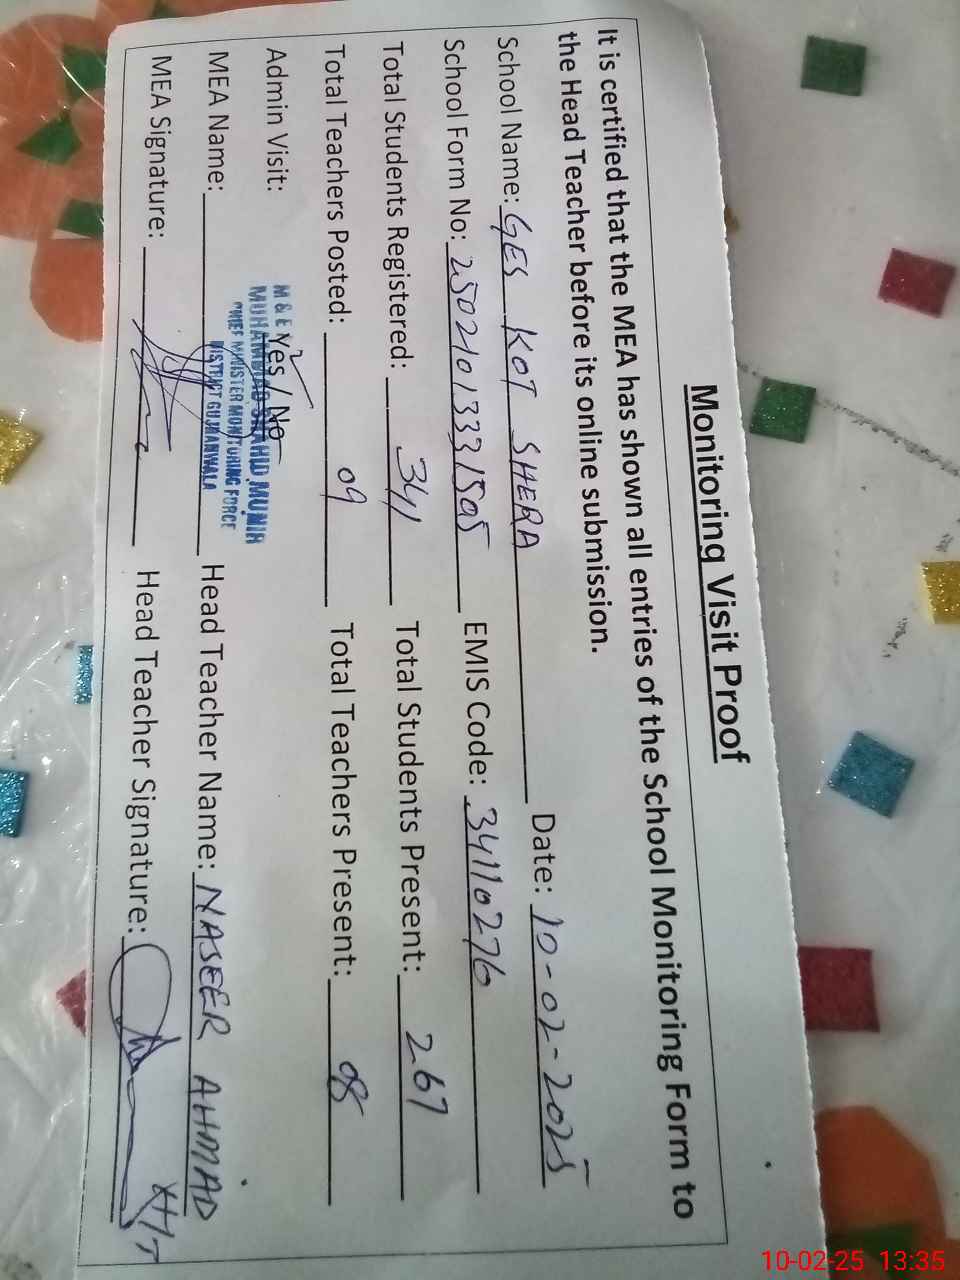 Monitoring Visit Proof
It is certified that the MEA has shown all entries of the School Monitoring Form to
the Head Teacher before its online submission.
School Name: GES KOT SHERA Date: 10-02-2025
School Form No: 25021013331505 EMIS Code: 34110276
Total Students Registered: 341 Total Students Present: 267
Total Teachers Posted: 09 Total Teachers Present: 08
Admin Visit: Yes / No
MEA Name: Head Teacher Name: NASEER AHMAD
M & E
MUHAMMAD SHAHID MUNIR
CHIEF MINISTER MONITORING FORCE
DISTRICT GUJRANWALA
MEA Signature: Head Teacher Signature:
10-02-25 13:35